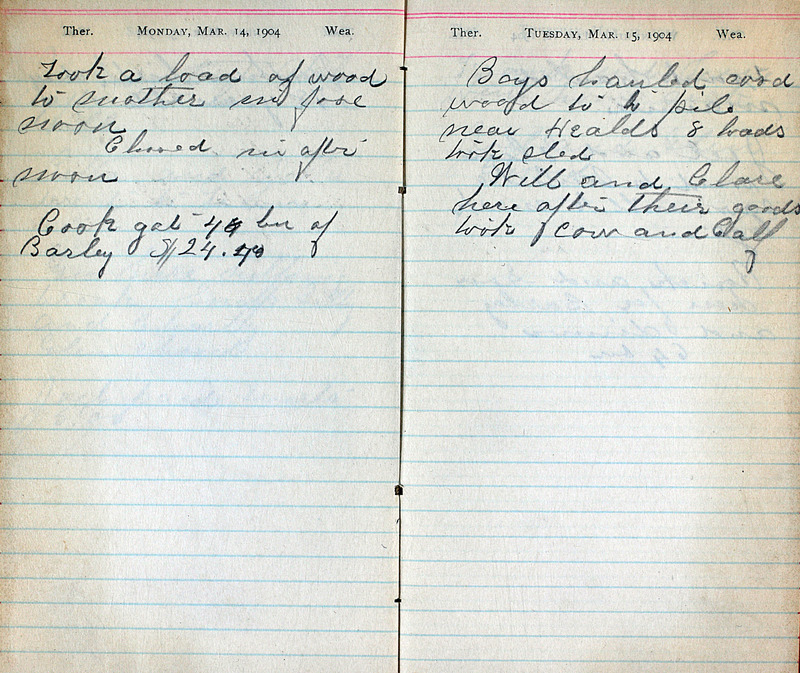 Ther. Monday, Mar. 14, 1904 Wea.
Took a load of wood
to mother in fore
noon
Chored in after
noon
Cook got bu of
Barley $24.
Ther. Tuesday, Mar. 15, 1904 Wea.
Boys hauled cord
wood to pile
near Healds 8 loads
with sled
Will and Clare
here after their goods
took cow and Calf